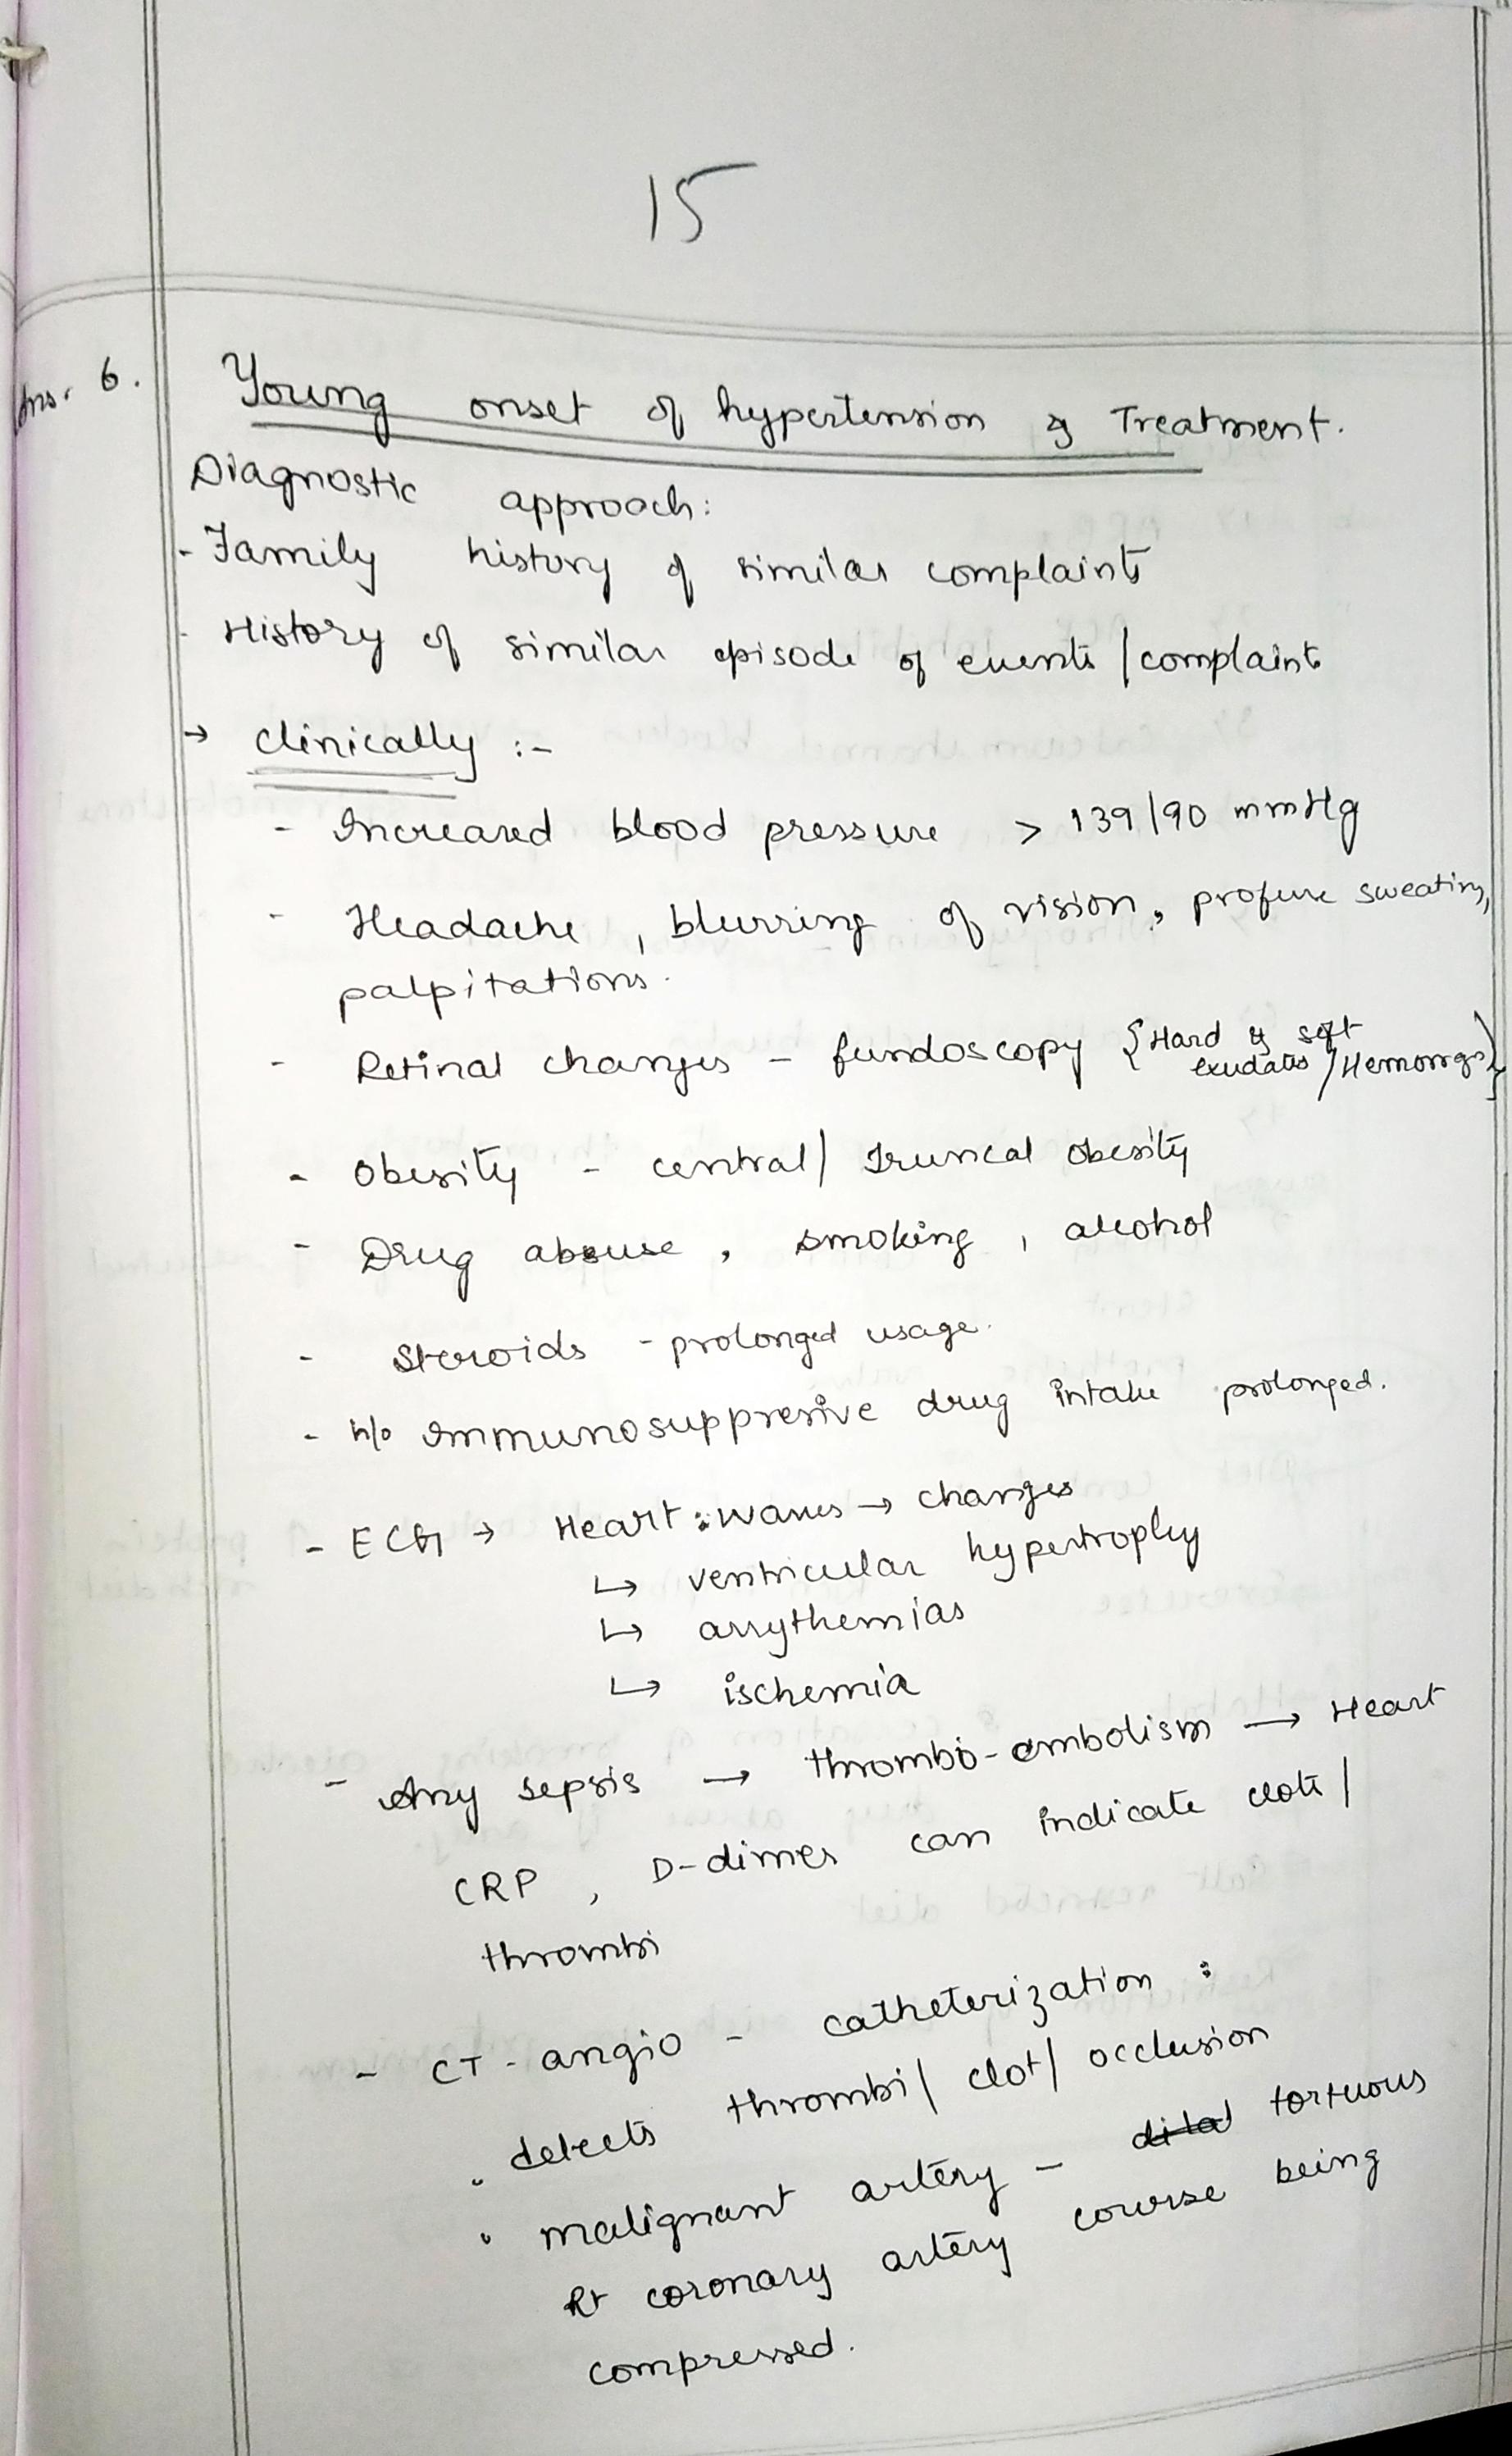 15
Ans. 6.
Young onset of hypertension & Treatment.
Diagnostic approach:
- Family history of similar complaints
- History of similar episode of events / complaints
→ Clinically :-
- Increased blood pressure > 139/90 mmHg
- Headache, blurring of vision, profuse sweating,
palpitations.
- Retinal changes - fundoscopy {Hard & soft
exudates / Hemorrgs}
- Obesity - central / Truncal obesity
- Drug abuse, smoking, alcohol
- Steroids - prolonged usage.
- h/o Immunosuppresive drug intake prolonged.
- ECG → Heart : waves → changes
↳ ventricular hypertrophy
↳ arrythemias
↳ ischemia
- Any sepsis → thrombo-embolism → Heart
CRP, D-dimer can indicate clots /
thrombi
- CT-angio - catheterization :
• detects thrombi / clot / occlusion
• malignant artery - tortuous
Rt coronary artery course being
compressed.